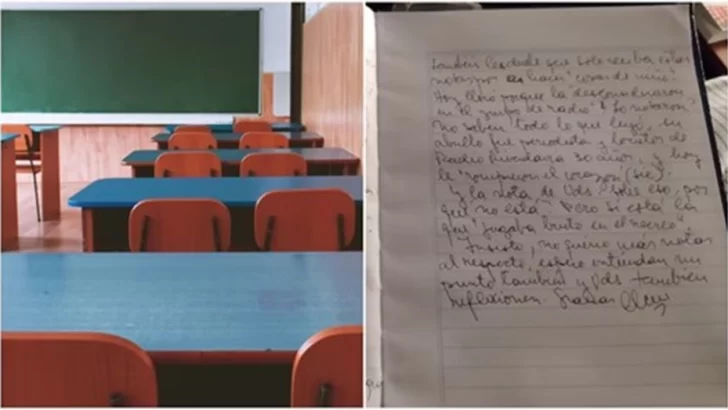 También les duele que solo reciba estas
notas por hacer "cosas de niño".
Hoy lloró porque la "descoordinaron
en el grupo de radio" ¿Lo notaron?
No saben todo lo que lloró, su
abuelo fue periodista y locutor de
Radio Rivadavia 30 años, y hoy
le "rompieron el corazón (sic).
Y la nota de Uds. sobre eso, por
qué no está? Pero sí está la
que "jugaba bruto en el recreo".
Insisto, no quiero más notas
al respecto, espero entiendan mi
punto también y Uds también
reflexionen. Gracias